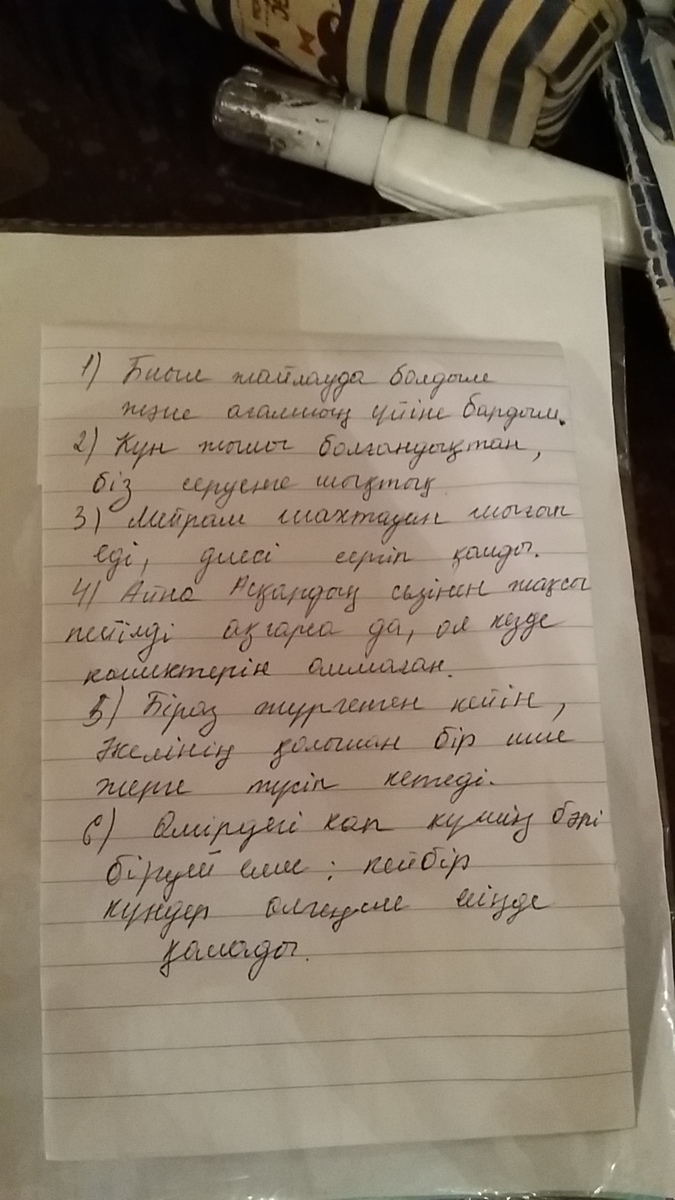 1) Биыл жайлауда болдым
және ағамның үйіне бардым.
2) Күн жылы болғандықтан,
біз серуенге шықтық
3) Мейрам шахтадан шыққан
еді, денесі сергіп қалды.
4) Айна Асқардың сөзінен жақсы
пейілді аңғарса да, ол кезде
көмектерін алмаған.
5) Біраз жүргеннен кейін,
Әкелінің қолынан бір ине
жерге түсіп кетеді.
6) Өмірдегі көп күннің бәрі
бірдей емес: кейбір
күндер өлгенше есіңде
қалады.